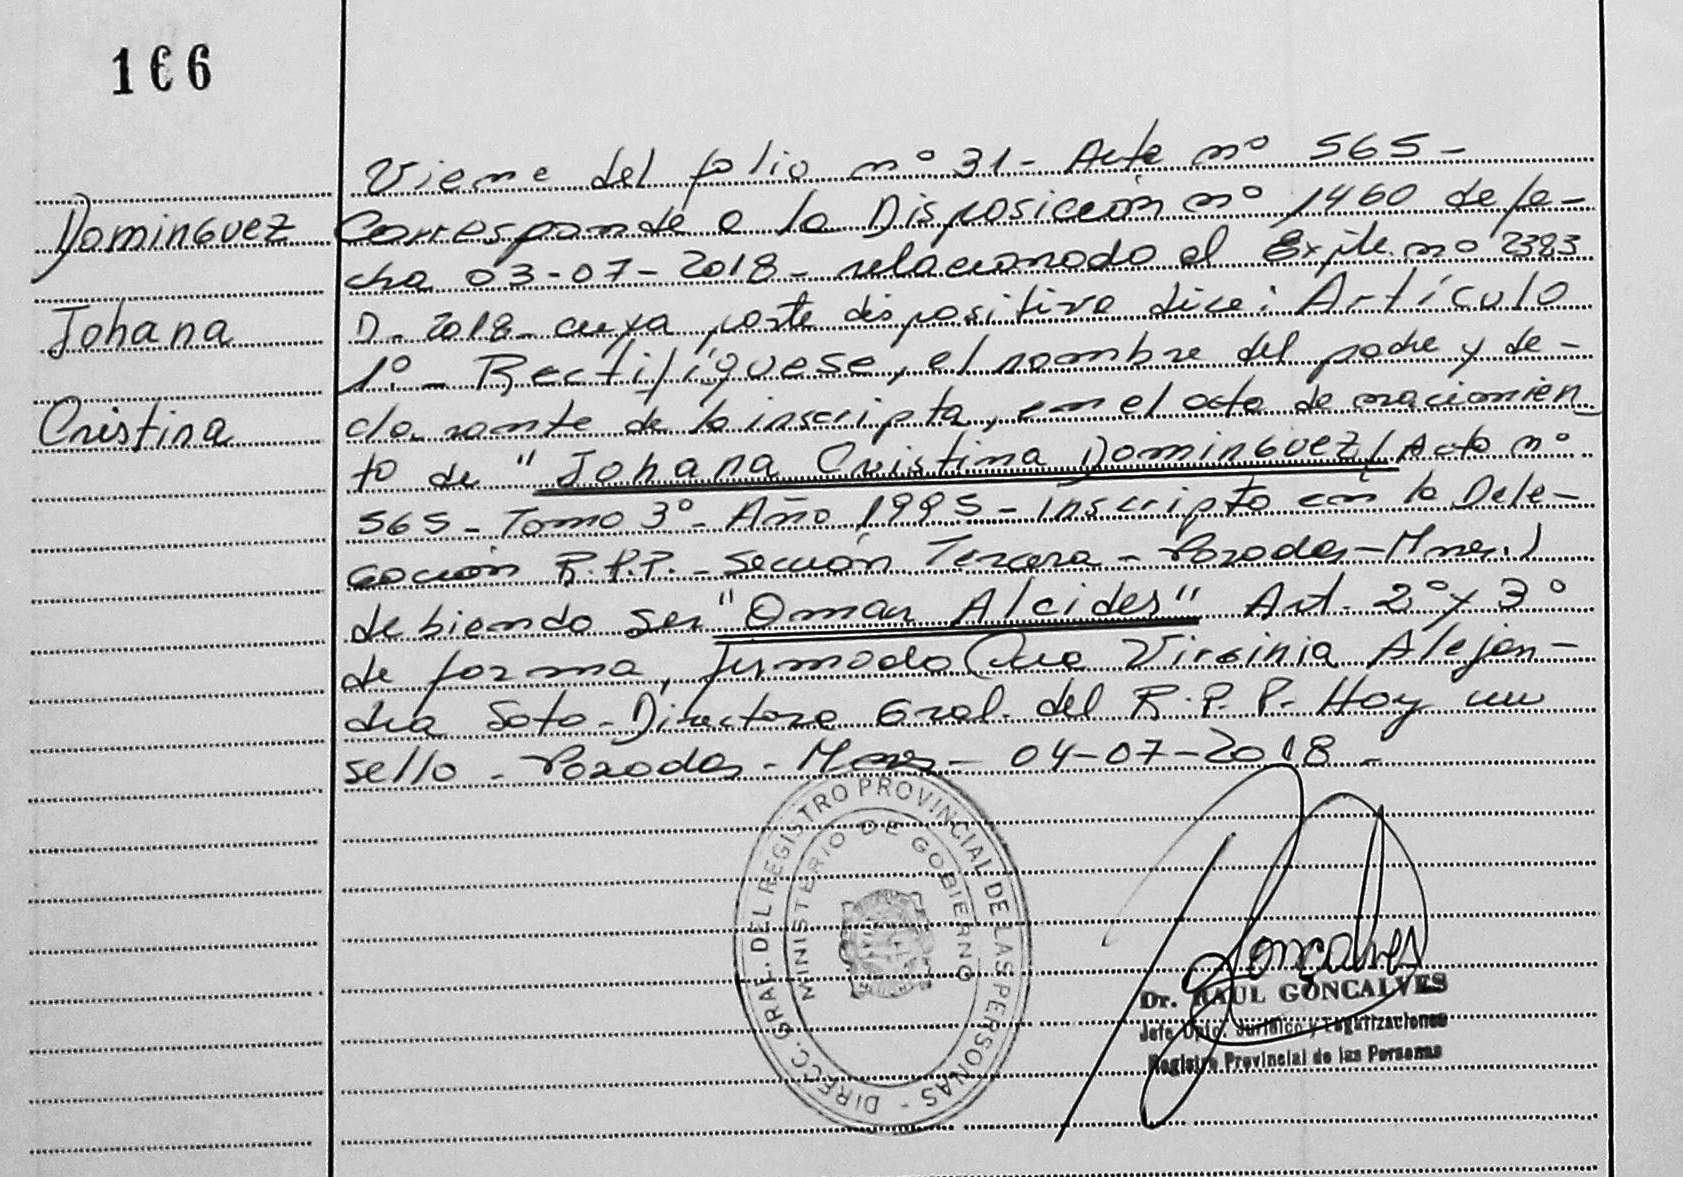 166
Dominguez
Johana
Cristina
Viene del folio nº 31 - Acta nº 565 -
Corresponde a la Disposición nº 1460 de fe-
cha 03-07-2018 - relacionado al Expte. nº 2383
D - 2018 - cuya parte dispositiva dice: Artículo
1º - Rectifíquese, el nombre del padre y de-
clarante de la inscripta, en el acta de nacimien
to de "Johana Cristina Dominguez/ Acta nº
565 - Tomo 3º - Año 1995 - Inscripta en la Dele-
gación R.P.P. - Sección Tercera - Posadas - Mnes.)
debiendo ser "Omar Alcides" Art. 2º y 3º
de forma, firmado Virginia Alejan-
dra Soto - Directora Gral. del R.P.P. Hoy un
sello - Posadas - Mnes - 04-07-2018 -
DIRECC. GRAL. DEL REGISTRO PROVINCIAL DE LAS PERSONAS -
MINISTERIO DE GOBIERNO
Gonçalves
Dr. RAUL GONCALVES
Jefe Dpto. Jurídico y Legalizaciones
Registro Provincial de las Personas